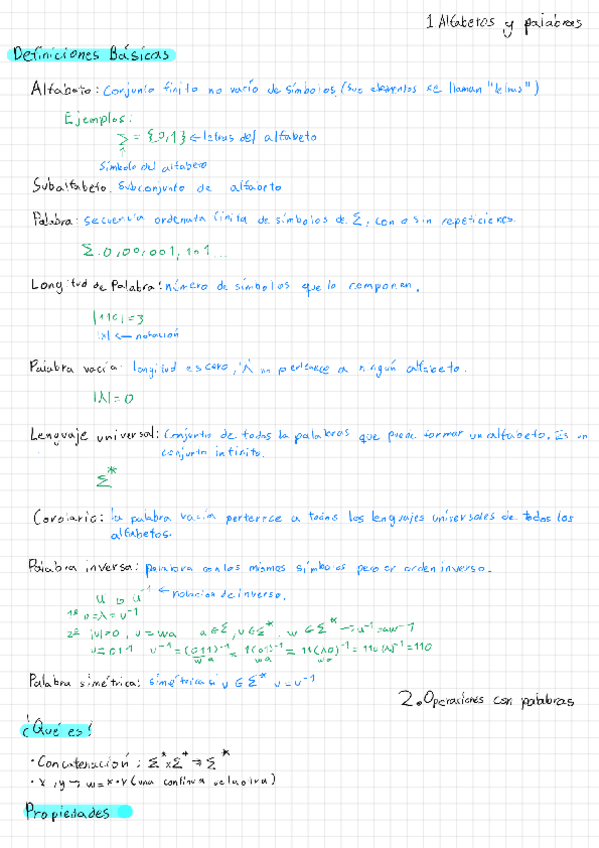 1 Alfabetos y palabras
Definiciones Básicas
Alfabeto: Conjunto finito no vacío de símbolos (sus elementos se llaman "letras")
Ejemplos:
Σ = {0,1} ← letras del alfabeto
↑
Símbolo del alfabeto
Subalfabeto. Subconjunto de alfabeto
Palabra: secuencia ordenada finita de símbolos de Σ, con o sin repeticiones.
Σ. 0, 00, 001, 101...
Longitud de Palabra: número de símbolos que lo componen.
|110| = 3
|x| ← notación
Palabra vacía: longitud es cero, λ no pertenece a ningún alfabeto.
|λ| = 0
Lenguaje universal: Conjunto de todas la palabras que puede formar un alfabeto. Es un
conjunto infinito.
Σ*
Corolario: la palabra vacía pertenece a todos los lenguajes universales de todos los
alfabetos.
Palabra inversa: palabra con los mismos símbolos pero en orden inverso.
u⁻¹ ← notación de inverso.
1º u = λ = u⁻¹
2º |u|>0, u = wa a ∈ Σ, u ∈ Σ*, w ∈ Σ* → u⁻¹ = aw⁻¹
u = 011 u⁻¹ = (011)⁻¹ = 1(01)⁻¹ = 11(λ0)⁻¹ = 110(λ)⁻¹ = 110
wa wa wa
Palabra simétrica: simétrica si u ∈ Σ* u = u⁻¹
2. Operaciones con palabras
¿Qué es?
· Concatenación: Σ* x Σ* → Σ*
· x, y → w = x · y (una continua)
Propiedades